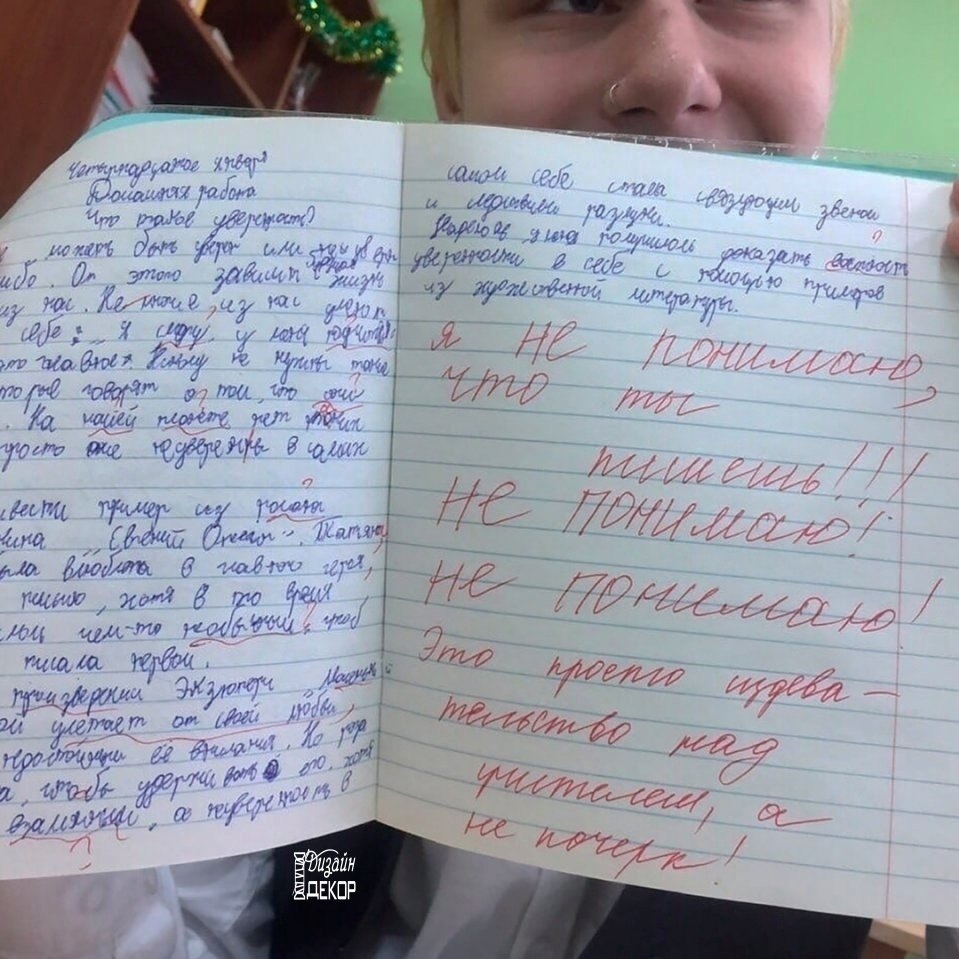 Четырнадцатое января
Домашняя работа
Что такое уверенность?
может быть уверен или
либо. От этого зависит жизнь
из нас. Не многие из нас умеют
себе: „ Я смогу, у меня получится
это главное". Никому не нужны
которые говорят о том, что они
. На нашей планете нет таких
просто они не уверены в самих
ивести пример из романа
„ Евгений Онегин ". Татьяна
была влюблена в главного героя,
письмо, хотя в то время
чем-то необычным, чтоб
писала первой.
произведении Экзюпери „ Маленький
улетает от своей любви,
её внимания. Но роза
а, чтобы удерживать его, хотя
взаимны, а неуверенность в
самом себе стала связующим звеном
и разлуки.
Надеюсь, у меня получилось доказать важность
уверенности в себе с помощью примеров
из художественной литературы.
я не понимаю,
что ты
пишешь!!!
Не понимаю!
Не понимаю!
Это просто издева-
тельство над
учителем, а
не почерк!
Дизайн
ДЕКОР